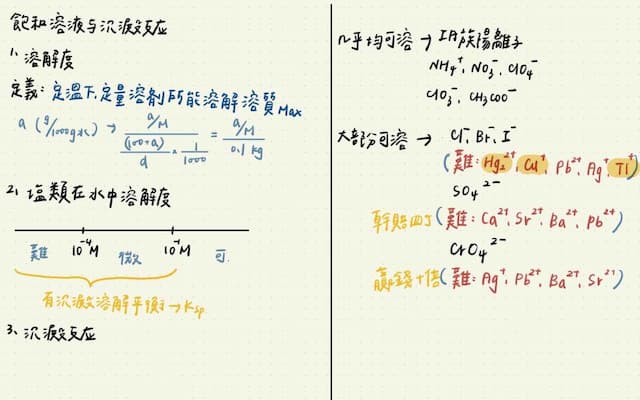 飽和溶液与沉澱反应
1、溶解度
定義: 定温下、定量溶剂所能溶解溶質Max
a (g/100g水) → a/M / ((100+a)/d × 1/1000) = a/M / 0.1 kg
2、塩類在水中溶解度
難 10⁻⁴M 微 10⁻¹M 可
有沉澱溶解平衡 → Ksp
3、沉澱反应
几乎均可溶 → IA族陽離子
NH₄⁺, NO₃⁻, ClO₄⁻
ClO₃⁻, CH₃COO⁻
大部份可溶 → Cl⁻, Br⁻, I⁻
(難: Hg₂²⁺, Cu⁺, Pb²⁺, Ag⁺, Tl⁺)
SO₄²⁻
幹賠四J (難: Ca²⁺, Sr²⁺, Ba²⁺, Pb²⁺)
CrO₄²⁻
贏錢十倍 (難: Ag⁺, Pb²⁺, Ba²⁺, Sr²⁺)